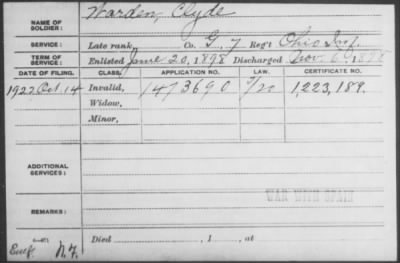 NAME OF SOLDIER: Warden, Clyde
SERVICE: Late rank, Co. G, 7 Reg't Ohio Inf.
TERM OF SERVICE: Enlisted June 20, 1898 Discharged Nov. 6, 1898
DATE OF FILING. CLASS. APPLICATION NO. LAW. CERTIFICATE NO.
1922 Oct. 14 Invalid, 1473690 1,223,189.
Widow,
Minor,
ADDITIONAL SERVICES:
WAR WITH SPAIN
REMARKS:
Died , 1 , at